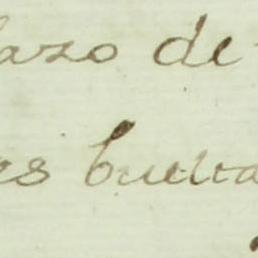 lazo de
es buelta